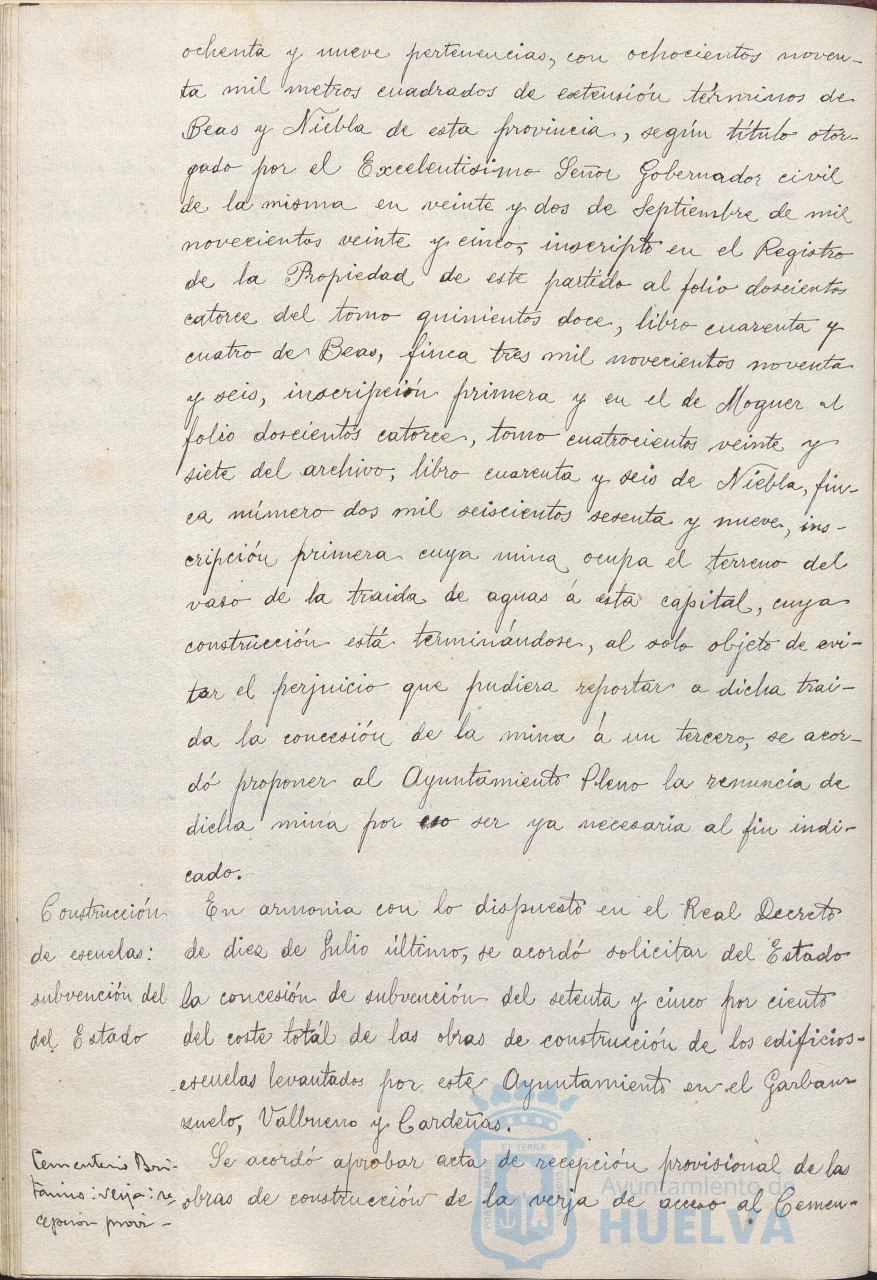 ochenta y nueve pertenencias, con ochocientos noven-
ta mil metros cuadrados de extensión términos de
Beas y Niebla de esta provincia, según título otor-
gado por el Excelentisimo Señor Gobernador civil
de la misma en veinte y dos de Septiembre de mil
novecientos veinte y cinco, inscripto en el Registro
de la Propiedad de este partido al folio doscientos
catorce del tomo quinientos doce, libro cuarenta y
cuatro de Beas, finca tres mil novecientos noventa
y seis, inscripción primera y en el de Moguer al
folio doscientos catorce, tomo cuatrocientos veinte y
siete del archivo, libro cuarenta y seis de Niebla, fin-
ca número dos mil seiscientos sesenta y nueve, ins-
cripción primera cuya mina ocupa el terreno del
vaso de la traida de aguas á esta capital, cuya
construcción está terminándose, al solo objeto de evi-
tar el perjuicio que pudiera reportar a dicha trai-
da la concesión de la mina á un tercero, se acor-
dó proponer al Ayuntamiento Pleno la renuncia de
dicha mina por ser ya necesaria al fin indi-
cado.
Construcción
de escuelas:
subvención del
del Estado
En armonia con lo dispuesto en el Real Decreto
de diez de Julio último, se acordó solicitar del Estado
la concesión de subvención del setenta y cinco por ciento
del coste totál de las obras de construcción de los edificios-
escuelas levantados por este Ayuntamiento en el Garban-
zuelo, Valbueno y Cardeñas.
Cementerio Bri-
tanico: verja: re-
cepción provi-
Se acordó aprobar acta de recepción provisional de las
obras de construcción de la verja de acceso al Cemen-
Ayuntamiento de
HUELVA